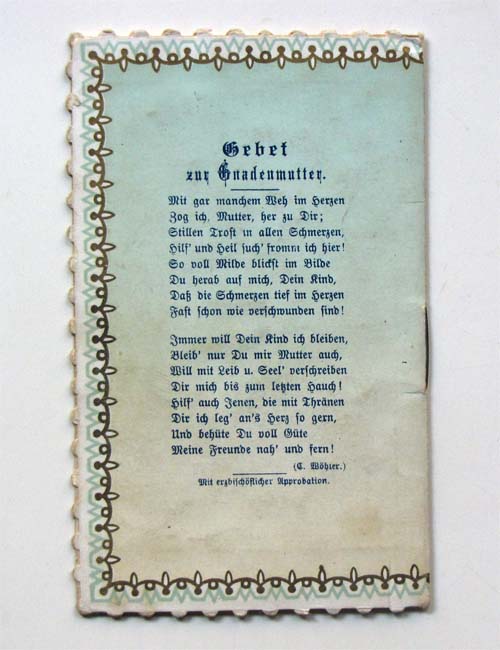 Gebet
zur Gnadenmutter.
Mit gar manchem Weh im Herzen
Zog ich, Mutter, her zu Dir;
Stillen Trost in allen Schmerzen,
Hilf' und Heil such' fromm ich hier!
So voll Milde blickst im Bilde
Du herab auf mich, Dein Kind,
Daß die Schmerzen tief im Herzen
Fast schon wie verschwunden sind!
Immer will Dein Kind ich bleiben,
Bleib' nur Du mir Mutter auch,
Will mit Leib u. Seel' verschreiben
Dir mich bis zum letzten Hauch!
Hilf' auch Jenen, die mit Thränen
Dir ich leg' an's Herz so gern,
Und behüte Du voll Güte
Meine Freunde nah' und fern!
(C. Wöhler.)
Mit erzbischöflicher Approbation.